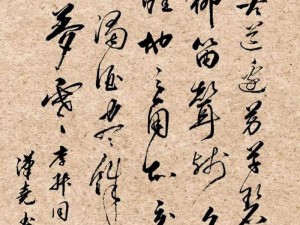 古道邊芳草碧
柳笛聲殘夕
涯地之角知交
濁酒盡餘
夢寒李叔同
漢堯書